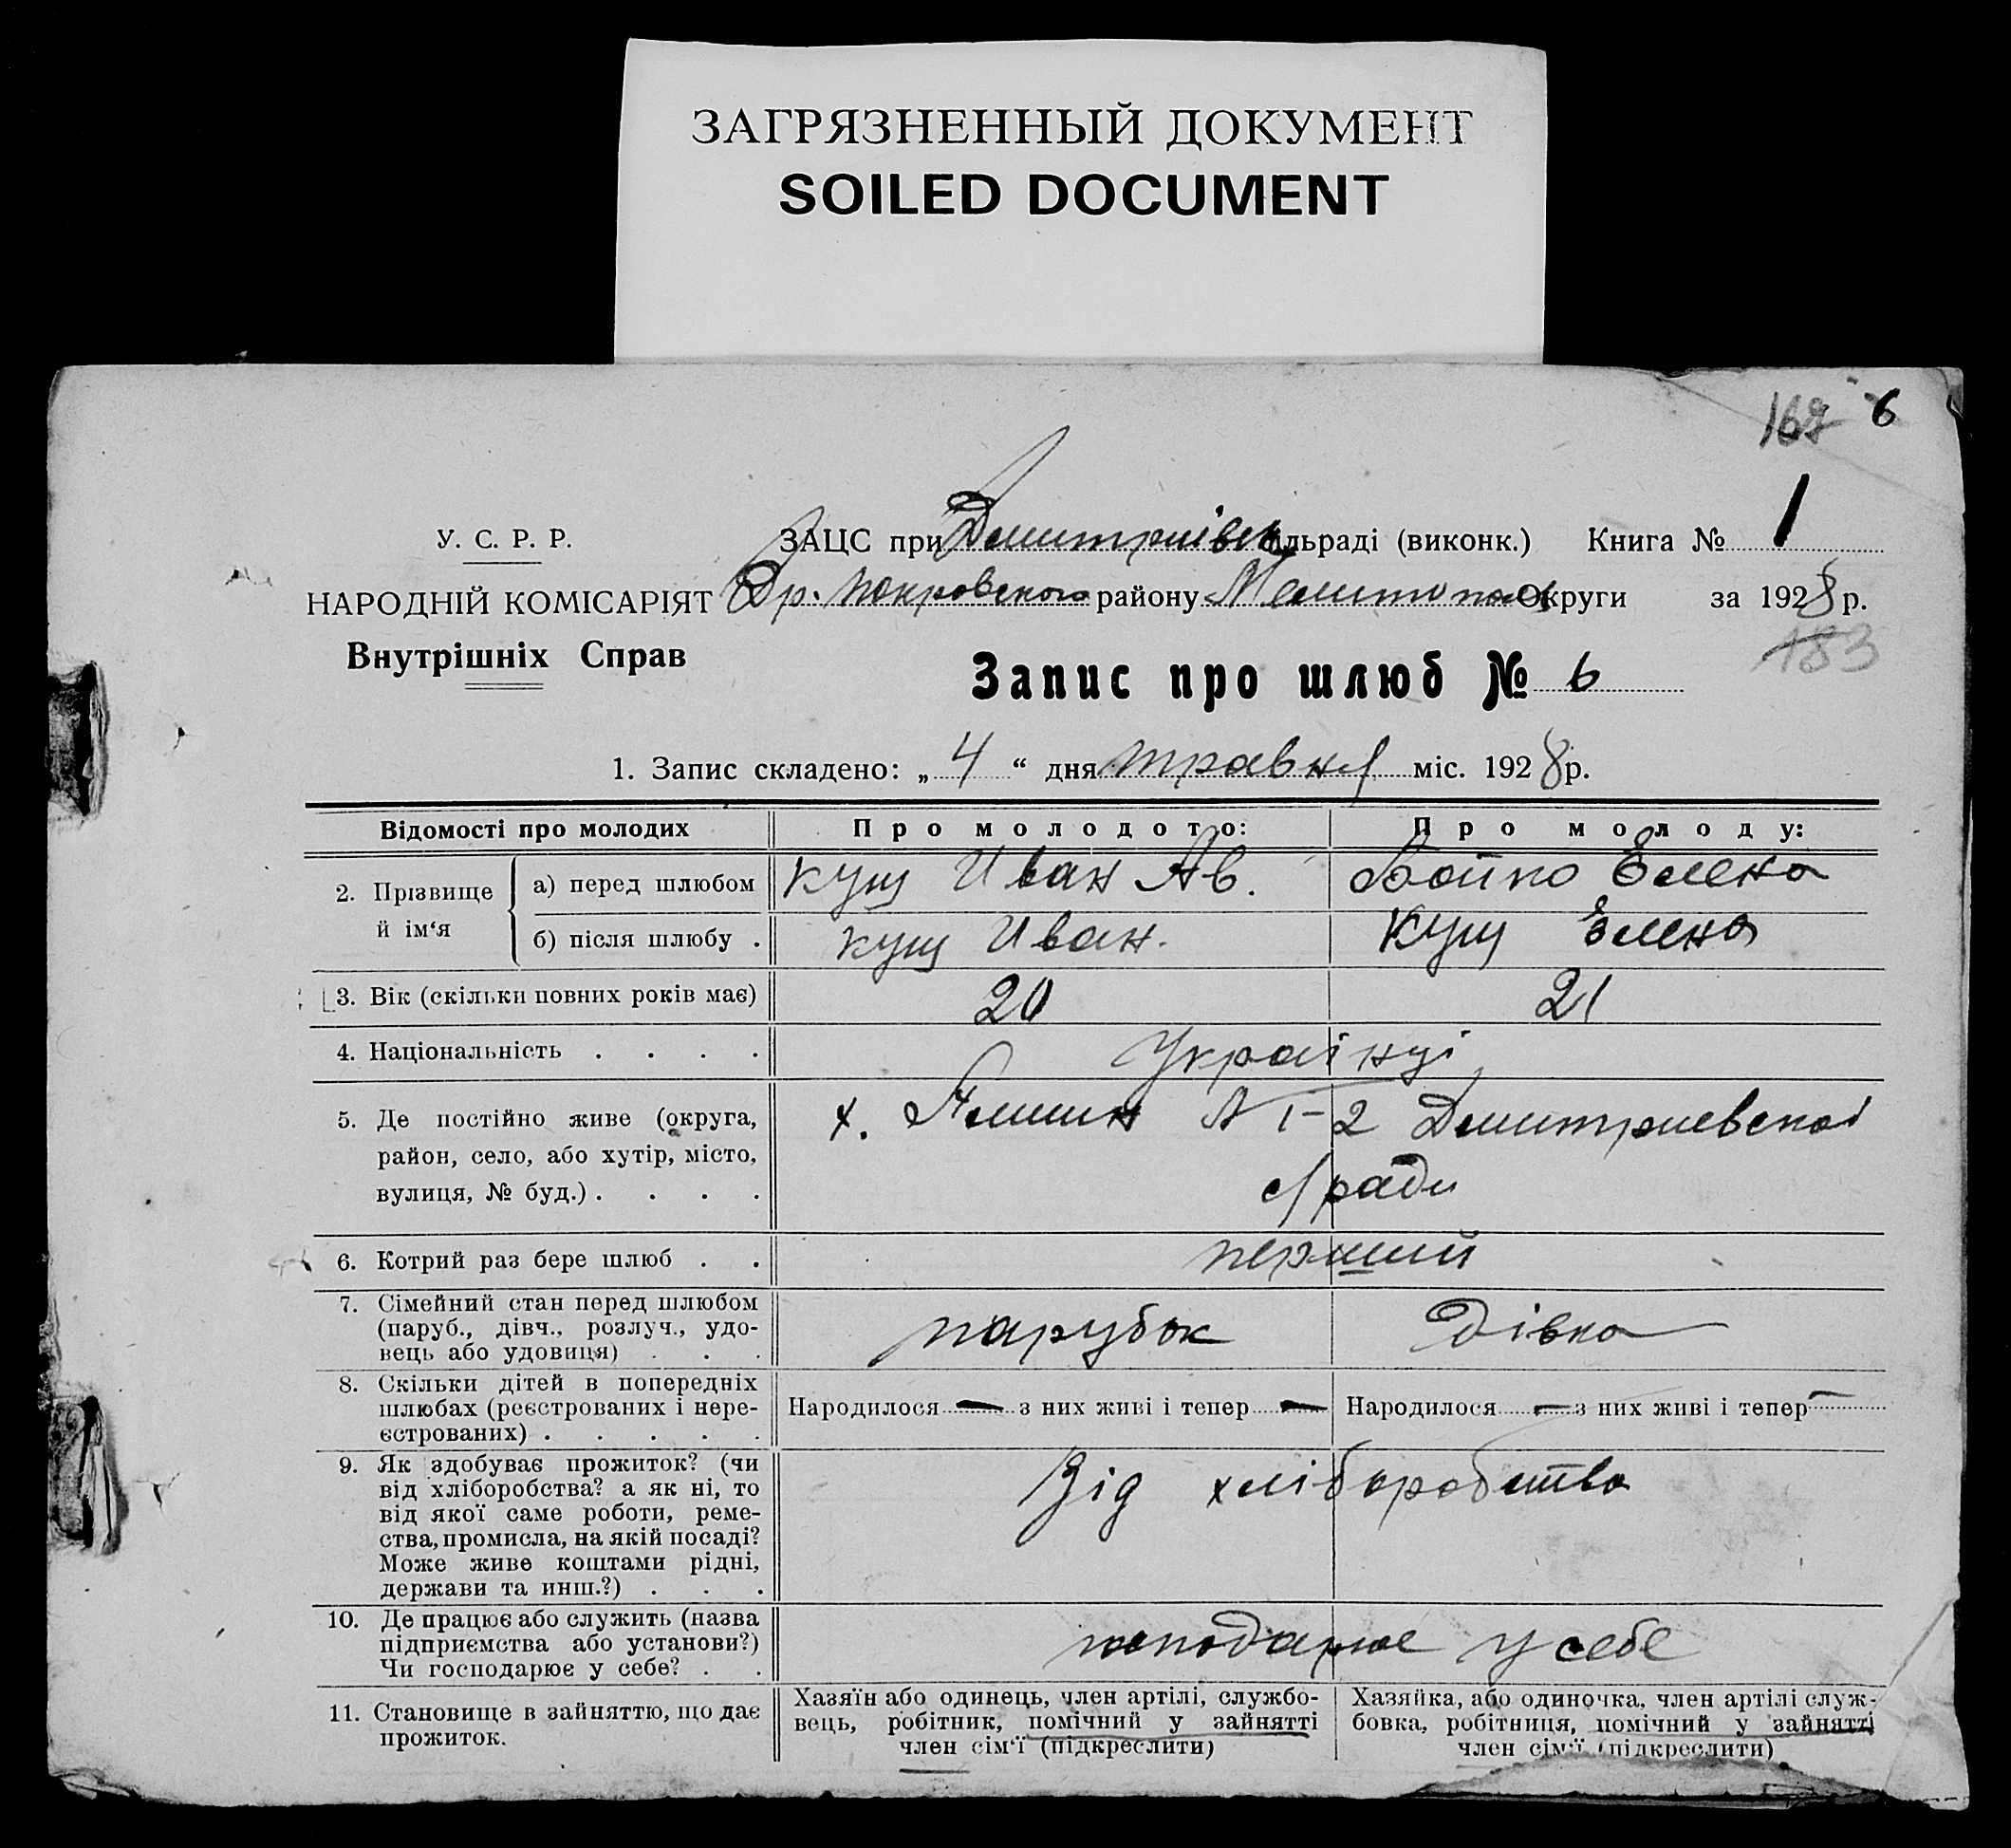 ЗАГРЯЗНЕННЫЙ ДОКУМЕНТ
SOILED DOCUMENT
6
У. С. Р. Р.
ЗАЦС при Дмитриівск ільраді (виконк.) Книга № 1
НАРОДНІЙ КОМІСАРІЯТ
Др. Покровского району Мелитопол Округи за 1928 р.
Внутрішніх Справ
183
Запис про шлюб № 6
1. Запис складено: „ 4 “ дня травня міс. 1928 р.
Відомості про молодих
Про молодого:
Про молоду:
2. Прізвище й ім‘я
а) перед шлюбом
Кущ Иван Ав.
Бойко Елена
б) після шлюбу .
Кущ Иван.
Кущ Елена
3. Вік (скільки повних років має)
20
21
4. Національність . . . .
Українці
5. Де постійно живе (округа,
район, село, або хутір, місто,
вулиця, № буд.) . . . .
х. № 1-2 Дмитриевскої
с/ради
6. Котрий раз бере шлюб . .
перший
7. Сімейний стан перед шлюбом
(паруб., дівч., розлуч., удо-
вець або удовиця) . . .
парубок
Дівка
8. Скільки дітей в попередніх
шлюбах (реєстрованих і нере-
єстрованих) . . . . .
Народилося — з них живі і тепер —
Народилося — з них живі і тепер —
9. Як здобуває прожиток? (чи
від хліборобства? а як ні, то
від якої саме роботи, реме-
ства, промисла, на якій посаді?
Може живе коштами рідні,
держави та инш.?) . . .
Від хліборобства
10. Де працює або служить (назва
підприємства або установи?)
Чи господарює у себе? . .
у себе
11. Становище в зайняттю, що дає
прожиток.
Хазяїн або одинець, член артілі, службо-
вець, робітник, помічний у зайнятті
член сім‘ї (підкреслити)
Хазяйка, або одиночка, член артілі служ-
бовка, робітниця, помічний у зайнятті
член сім‘ї (підкреслити)